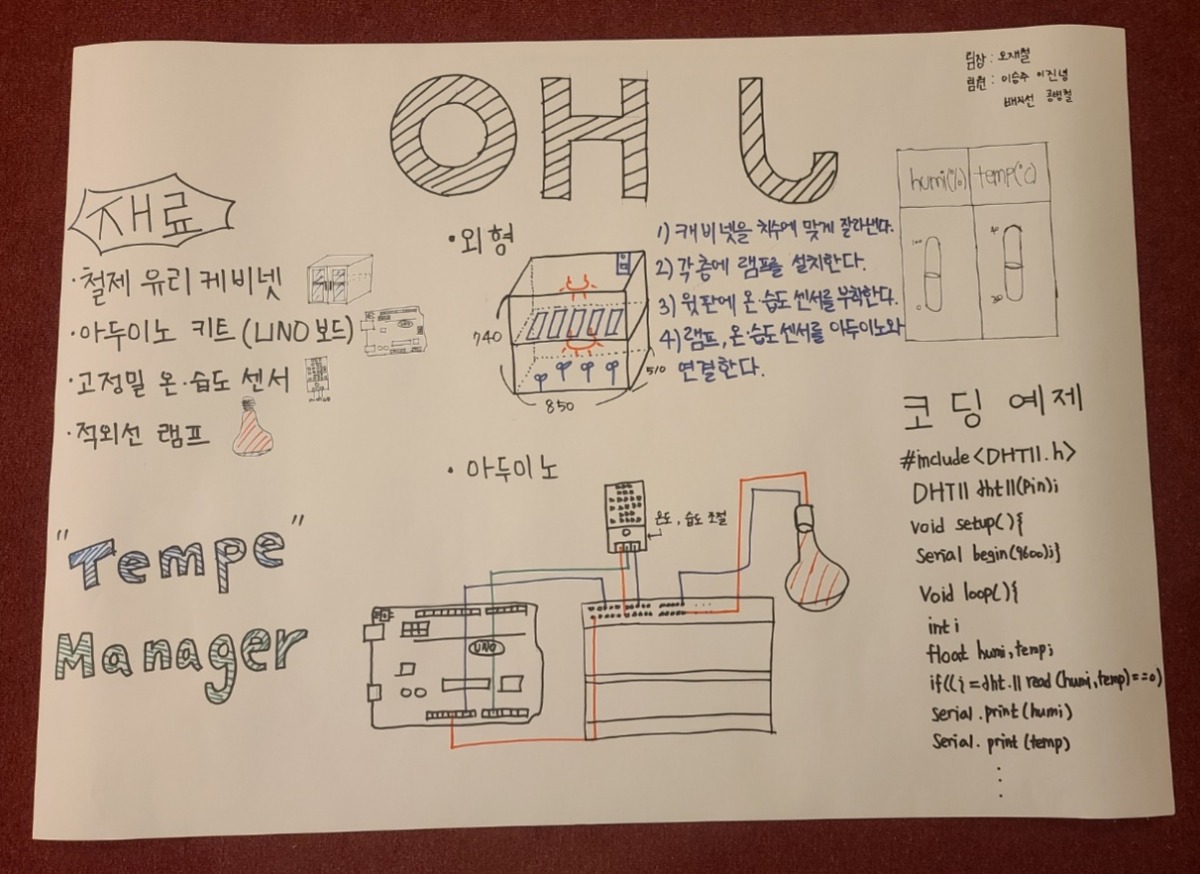 OH J
팀장 : 오재철
팀원 : 이승주 이진녕
배지선 공병철
재료
· 철제 유리 케비넷
· 아두이노 키트 (UNO 보드)
· 고정밀 온·습도 센서
· 적외선 램프
"Tempe"
Manager
· 외형
740
850
510
1) 캐비넷을 치수에 맞게 잘라낸다.
2) 각 층에 램프를 설치한다.
3) 윗판에 온·습도 센서를 부착한다.
4) 램프, 온·습도 센서를 아두이노와
연결한다.
· 아두이노
온도, 습도 조절
UNO
humi(%) temp(°C)
100
0
40
코딩 예제
#include<DHT11.h>
DHT11 dht11(Pin);
void setup(){
Serial begin(9600);}
Void loop(){
int i
float humi, temp;
if((i=dht.11 read (humi, temp)==0)
Serial.print(humi)
Serial.print(temp)